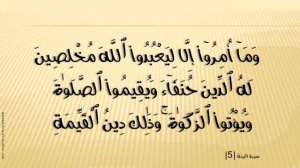 وَمَآ أُمِرُوٓا۟ إِلَّا لِيَعْبُدُوا۟ ٱللَّهَ مُخْلِصِينَ
لَهُ ٱلدِّينَ حُنَفَآءَ وَيُقِيمُوا۟ ٱلصَّلَوٰةَ
وَيُؤْتُوا۟ ٱلزَّكَوٰةَ ۚ وَذَٰلِكَ دِينُ ٱلْقَيِّمَةِ
سورة البينة |5|